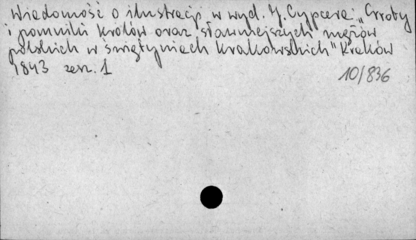 Wiadomość o ilustracji w wyd. J. Cypcera: „Groby
i pomniki królów oraz sławniejszych mężów
polskich w świątyniach krakowskich" Kraków
1843 zesz. 1
10/836